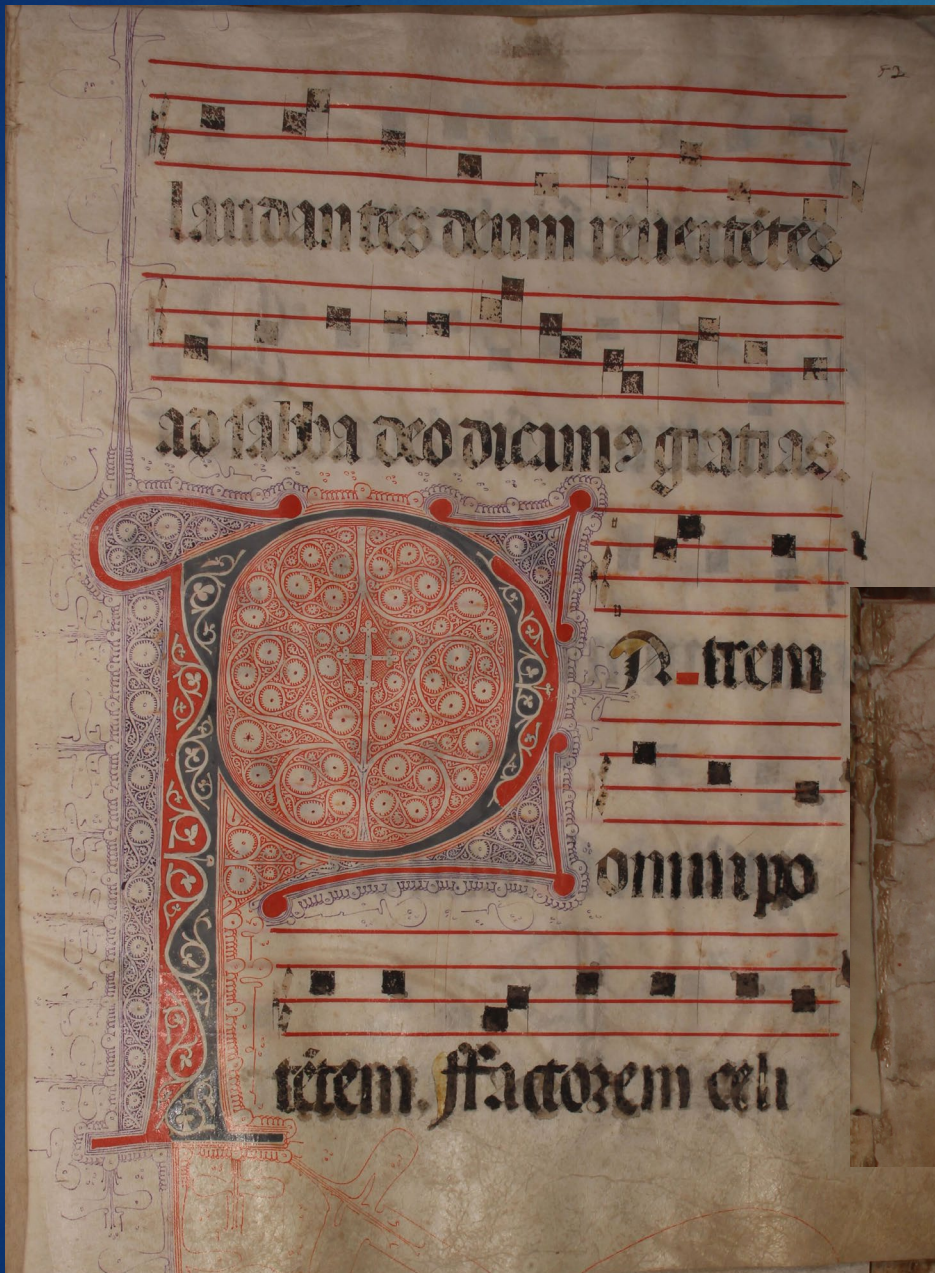 laudantes deum revertẽtes
ad sabba deo dicam⁹ gratias.
P A-trem
omnipo
tẽtem. ffactorem celi